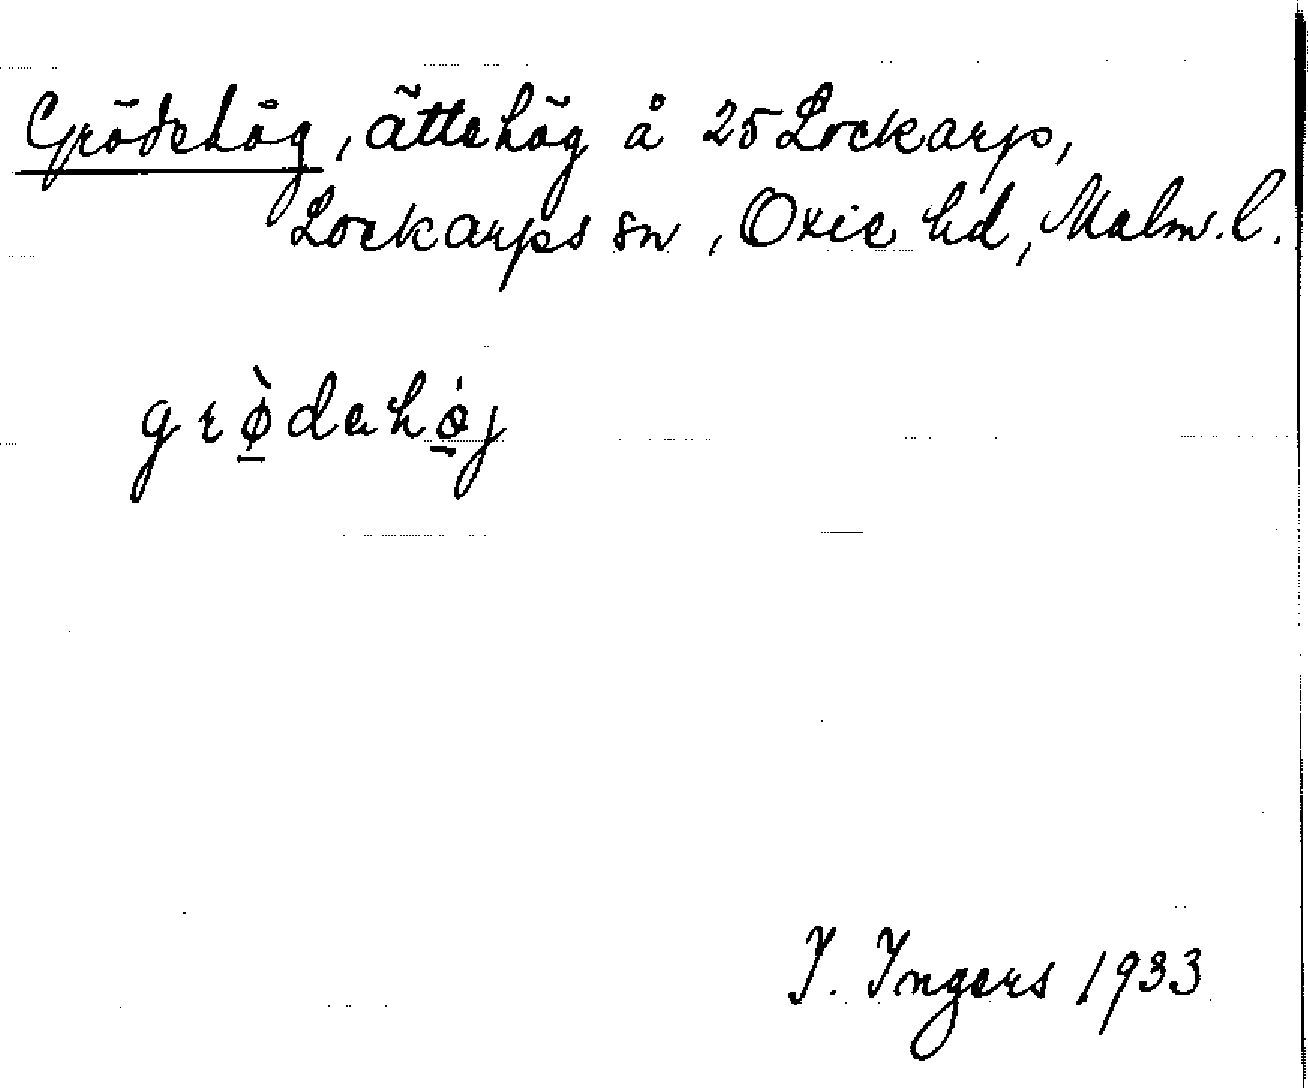 Grödehög, ättehög å 25 Lockarp,
Lockarps sn, Oxie hd, Malm. l.
grø̱̀dahǿ̱j
I. Ingers 1933